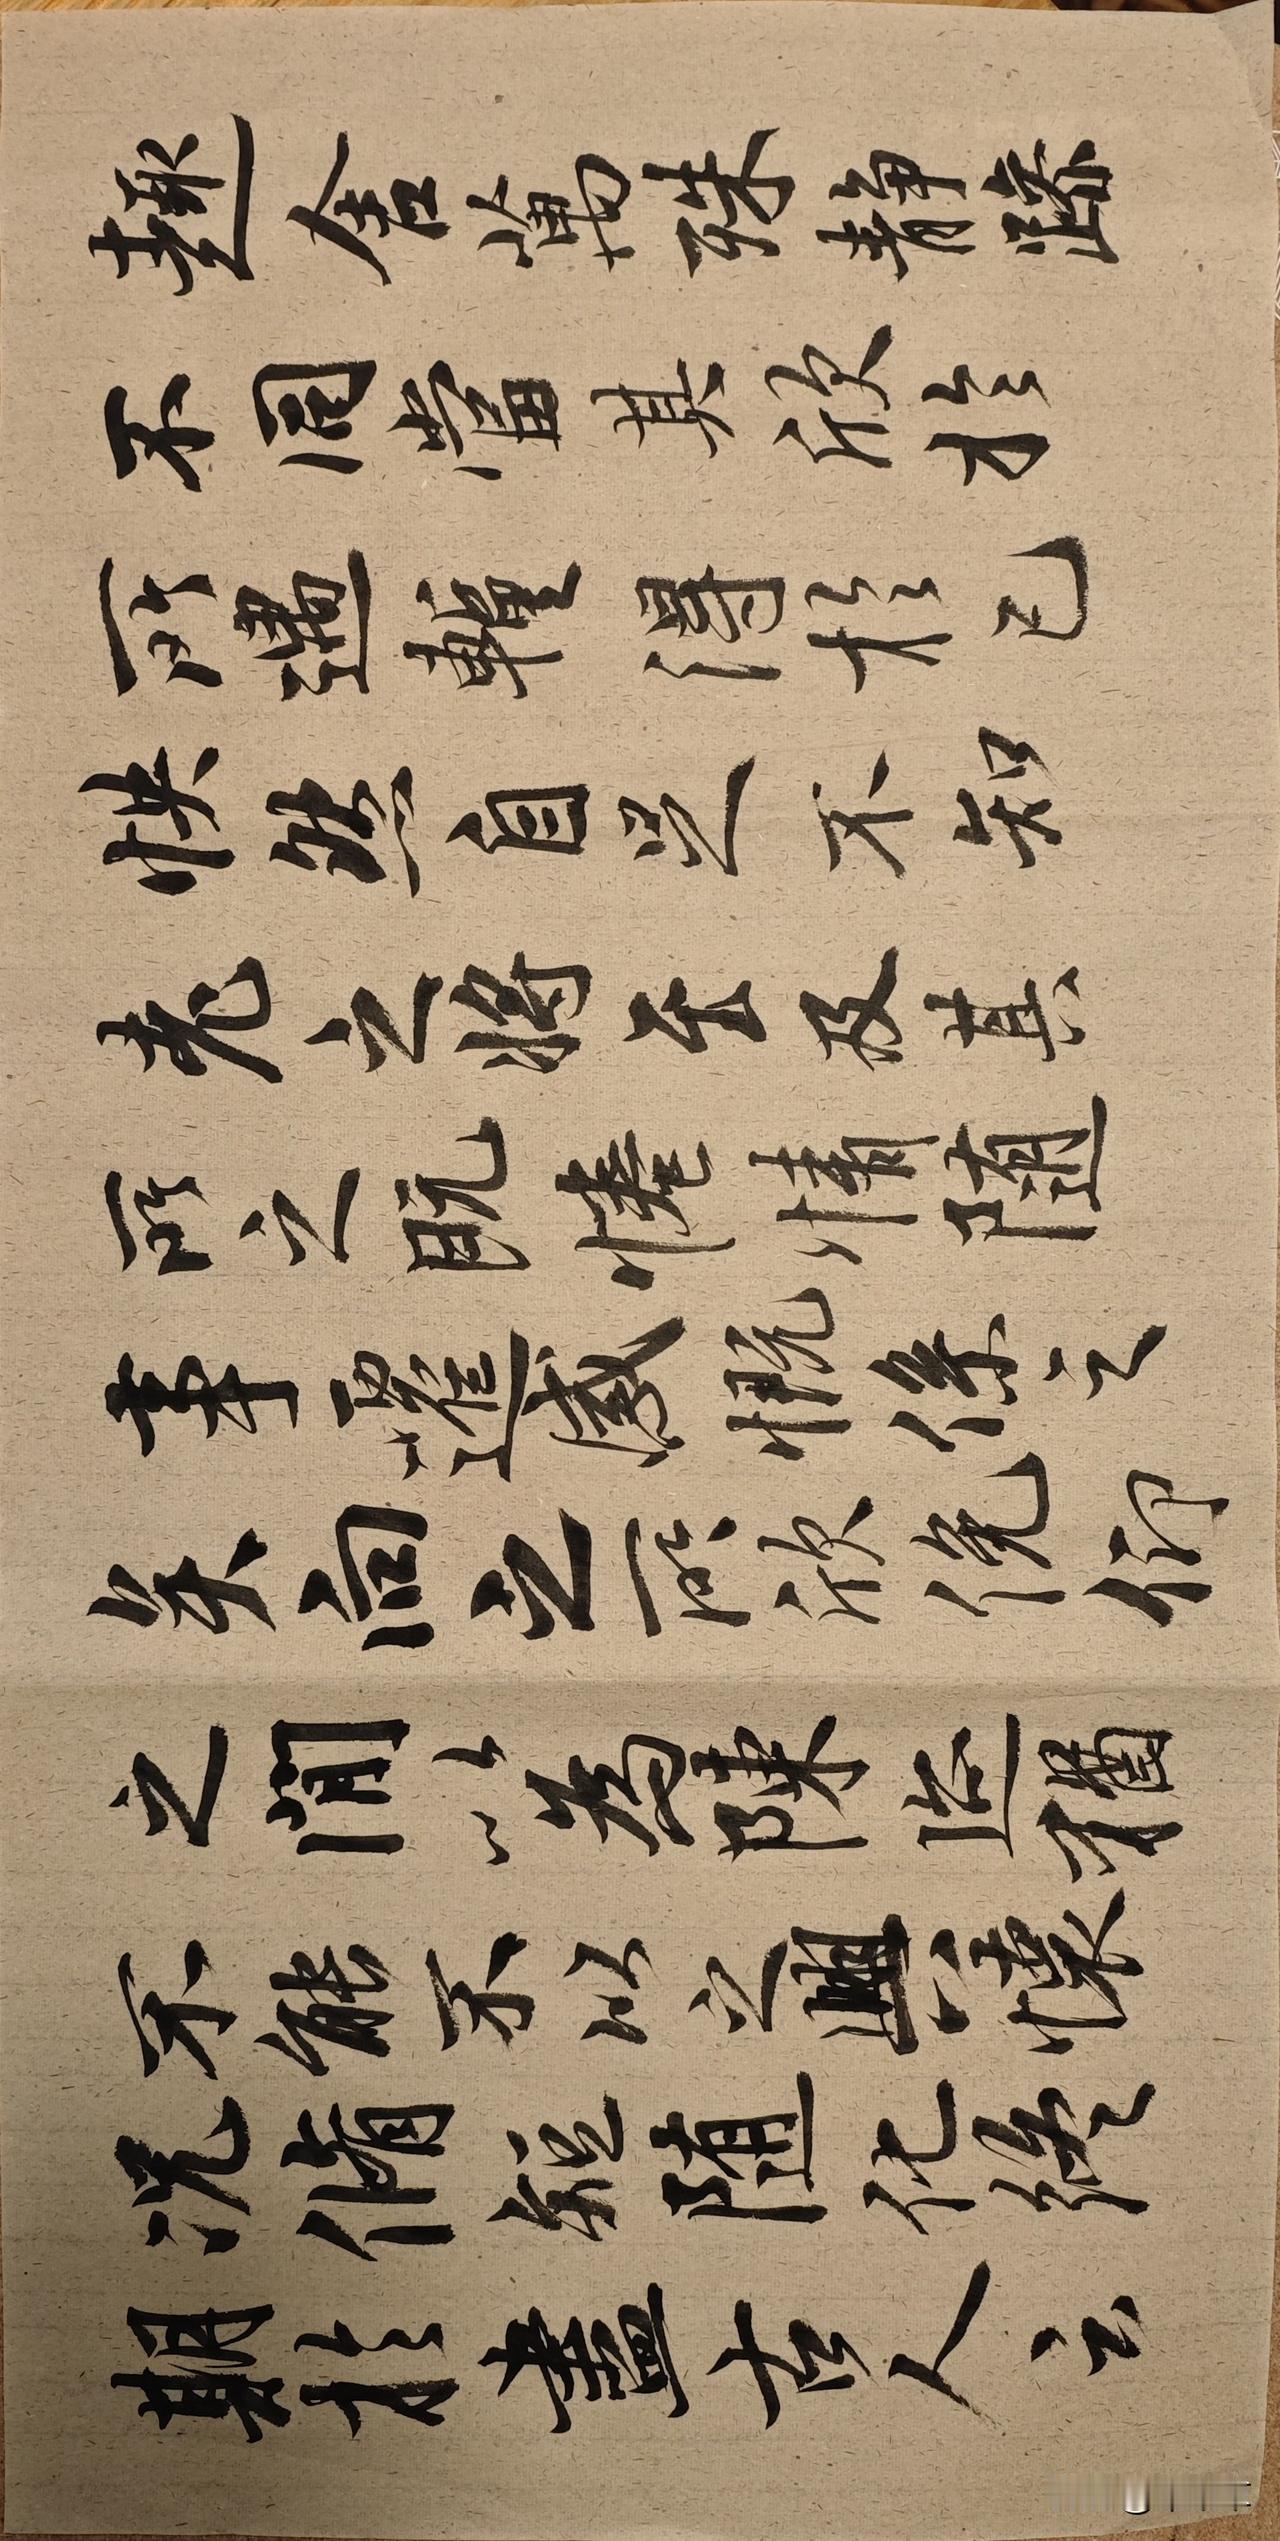 趣舍萬殊静躁
不同當其欣於
所遇暫得於己
快然自足不知
老之將至及其
所之既惓情隨
事遷感慨係之
矣向之所欣俛仰
之間以為陳迹猶
不能不以之興懷
況脩短隨化終
期於盡古人云